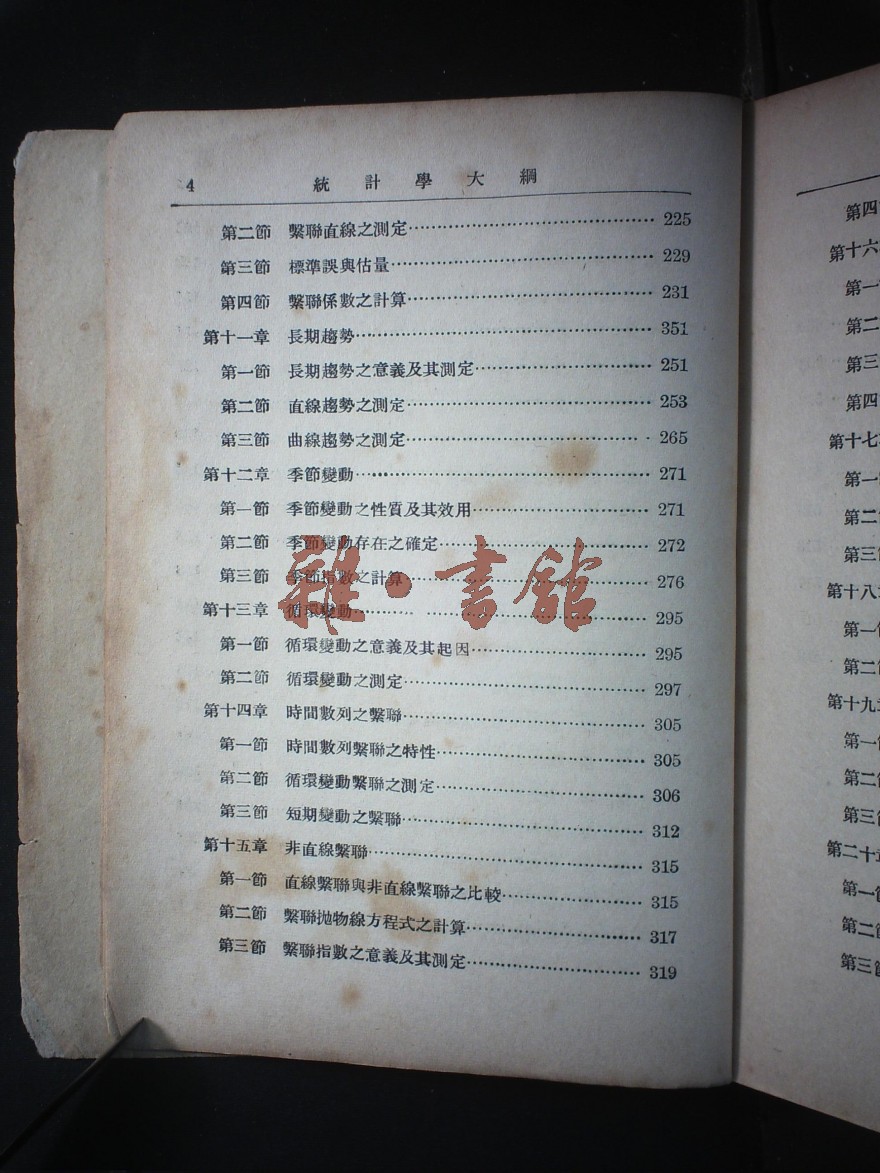 4 統計學大綱
第二節 繫聯直線之測定 225
第三節 標準誤與估量 229
第四節 繫聯係數之計算 231
第十一章 長期趨勢 351
第一節 長期趨勢之意義及其測定 251
第二節 直線趨勢之測定 253
第三節 曲線趨勢之測定 265
第十二章 季節變動 271
第一節 季節變動之性質及其效用 271
第二節 季節變動存在之確定 272
第三節 季節指數之計算 276
第十三章 循環變動 295
第一節 循環變動之意義及其起因 295
第二節 循環變動之測定 297
第十四章 時間數列之繫聯 305
第一節 時間數列繫聯之特性 305
第二節 循環變動繫聯之測定 306
第三節 短期變動之繫聯 312
第十五章 非直線繫聯 315
第一節 直線繫聯與非直線繫聯之比較 315
第二節 繫聯拋物線方程式之計算 317
第三節 繫聯指數之意義及其測定 319
雜·書館
第四
第十六
第一
第二
第三
第四
第十七
第一
第二
第三
第十八
第一
第二
第十九
第一
第二
第三
第二十
第一
第二
第三